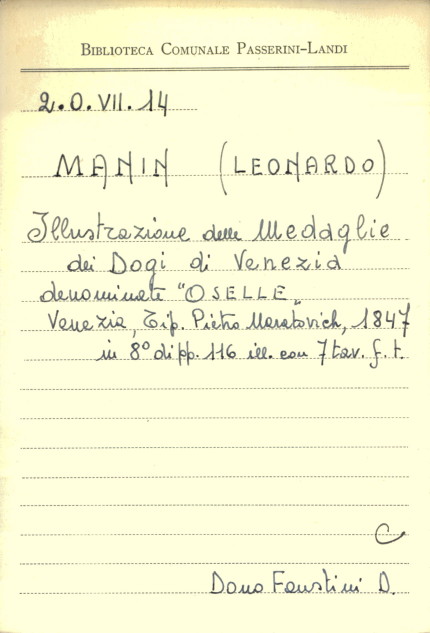 BIBLIOTECA COMUNALE PASSERINI-LANDI
2.O.VII.14
MANIN (LEONARDO)
Illustrazione delle Medaglie
dei Dogi di Venezia
denominate "OSELLE„
Venezia, Tip. Pietro Naratovich, 1847
in 8° di pp. 116 ill. con 7 tav. f. t.
C
Dono Faustini D.